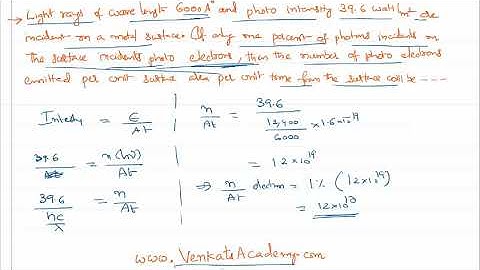 → Light rays of wave length 6000A° and photo intensity 39.6 watt/m² are
incident on a metal surface. If only one percent of photons incidents on
the surface incidents photo electrons, then the number of photo electrons
emmitted per unit surface area per unit time from the surface will be ----
Intensity = E/At
39.6/At = n(hυ)/At
39.6/(hc/λ) = n/At
n/At = 39.6/((12,400/6000) × 1.6×10⁻¹⁹)
= 12×10¹⁹
⇒ n/At electron = 1% (12×10¹⁹)
= 12×10¹⁷
www.VenkatsAcademy.com